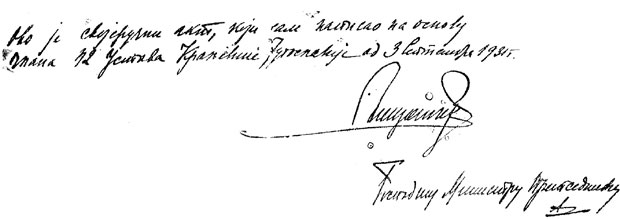 Ово је својеручни акт, који сам написао на основу
члана 42 Устава Краљевине Југославије од 3 Септембра 1931 г.
Господину Министру Претседнику